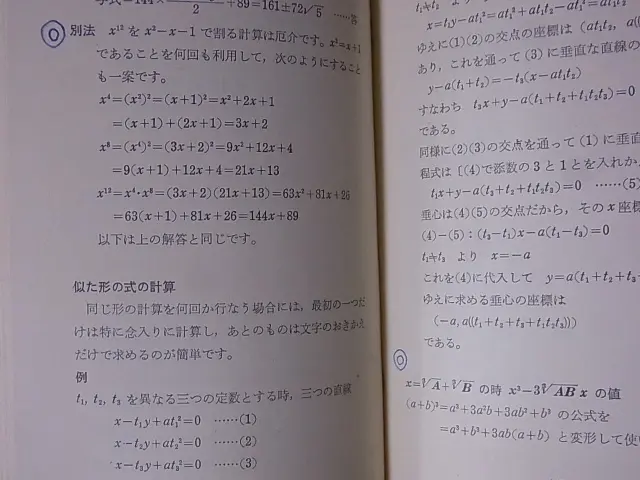 2
+89=161±72√5 ……答
別法 x¹²をx²−x−1で割る計算は厄介です。x²=x+1
であることを何回も利用して，次のようにすること
も一案です。
x⁴=(x²)²=(x+1)²=x²+2x+1
=(x+1)+(2x+1)=3x+2
x⁸=(x⁴)²=(3x+2)²=9x²+12x+4
=9(x+1)+12x+4=21x+13
x¹²=x⁴・x⁸=(3x+2)(21x+13)=63x²+81x+26
=63(x+1)+81x+26=144x+89
以下は上の解答と同じです。
似た形の式の計算
同じ形の計算を何回か行なう場合には，最初の一つだ
けは特に念入りに計算し，あとのものは文字のおきかえ
だけで求めるのが簡単です。
例
t₁, t₂, t₃ を異なる三つの定数とする時，三つの直線
x−t₁y+at₁²=0 ……(1)
x−t₂y+at₂²=0 ……(2)
x−t₃y+at₃²=0 ……(3)
x=t₁y−at₁²=at₁²+at₁t₂−at₁²=
ゆえに(1)(2)の交点の座標は (at₁t₂,
あり，これを通って(3)に垂直な直線の
y−a(t₁+t₂)=−t₃(x−at₁t₂)
すなわち t₃x+y−a(t₁+t₂+t₁t₂t₃)=0
である。
同様に(2)(3)の交点を通って(1)に垂直
程式は[(4)で添数の3と1とを入れか
t₁x+y−a(t₃+t₂+t₁t₂t₃)=0 ……(5)
垂心は(4)(5)の交点だから，そのx座標
(4)−(5)：(t₃−t₁)x−a(t₁−t₃)=0
t₁≠t₃ より x=−a
これを(4)に代入して y=a(t₁+t₂+t₃
ゆえに求める垂心の座標は
(−a, a((t₁+t₂+t₃+t₁t₂t₃)))
である。
x=∛A+∛B の時 x³−3∛AB x の値
(a+b)³=a³+3a²b+3ab²+b³ の公式を
=a³+b³+3ab(a+b) と変形して使